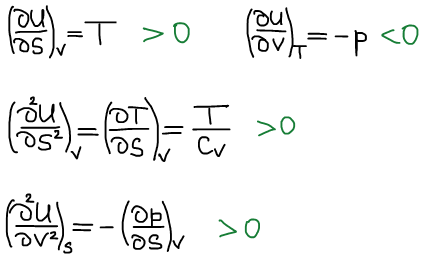 (∂U/∂S)_V = T > 0    (∂U/∂V)_T = -p < 0
(∂²U/∂S²)_V = (∂T/∂S)_V = T/C_V > 0
(∂²U/∂V²)_S = -(∂p/∂S)_V > 0